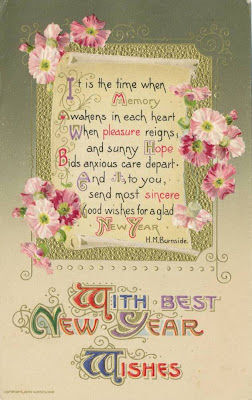 It is the time when
Memory
awakens in each heart
When pleasure reigns,
and sunny Hope
Bids anxious care depart.
And to you,
send most sincere
Good wishes for a glad
New Year
H.M. Burnside.
With best
New Year
Wishes